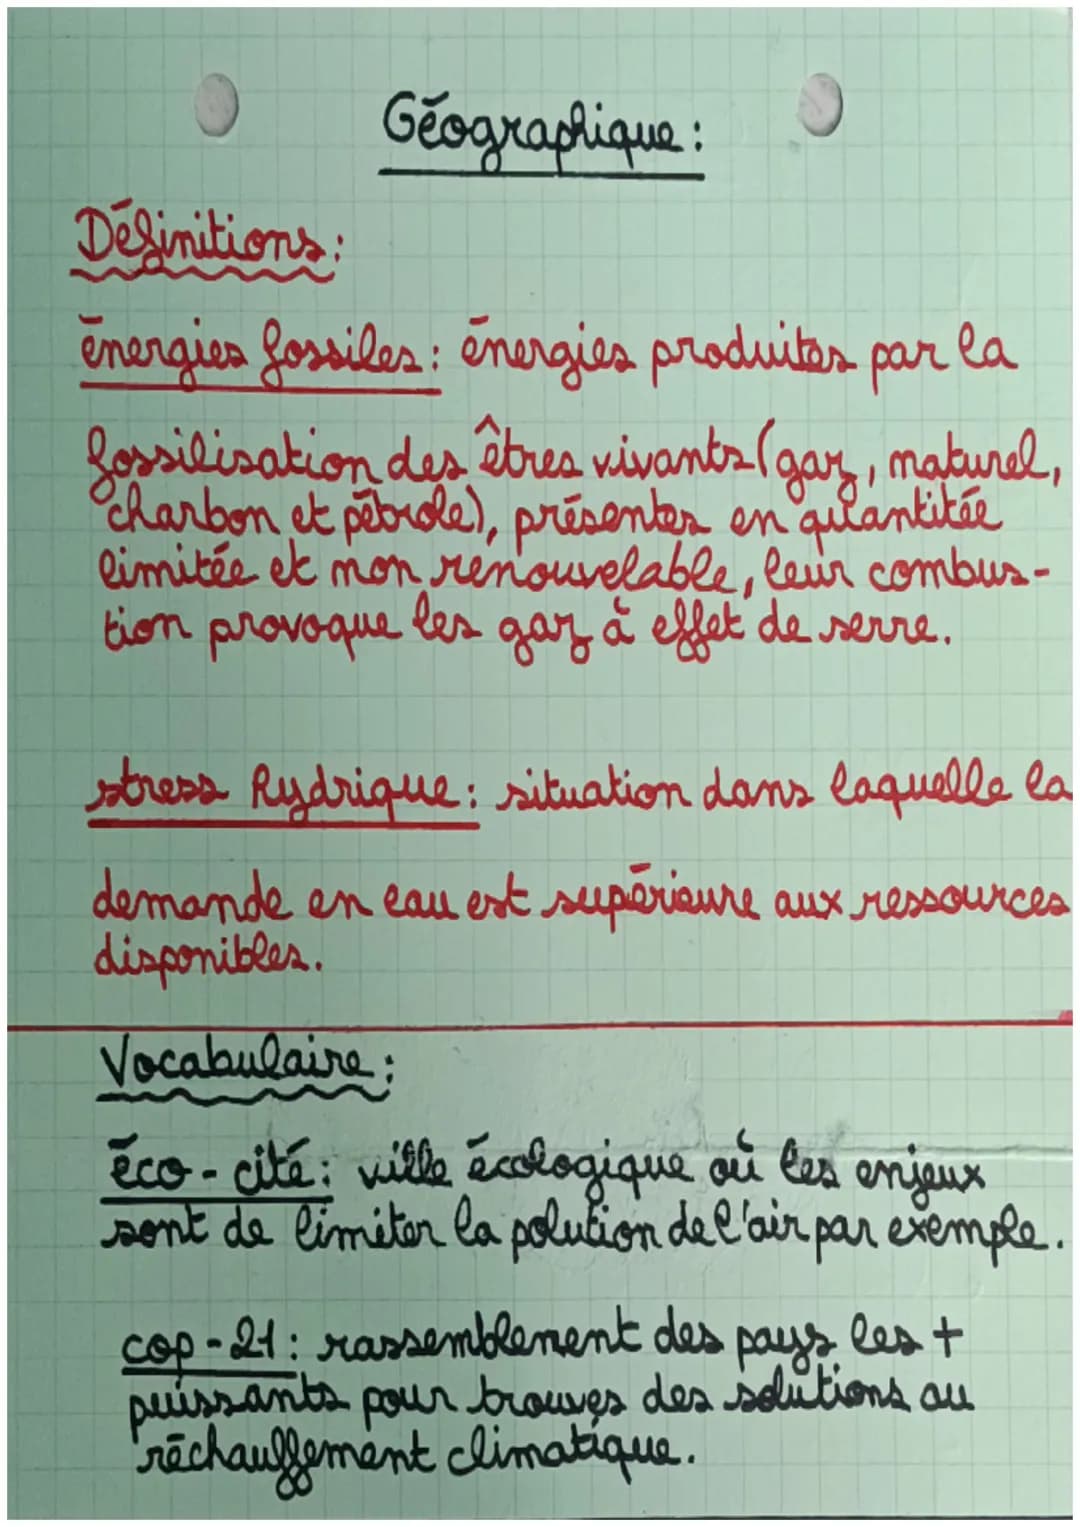 Géographique :
Définitions :
énergies fossiles : énergies produites par la
fossilisation des êtres vivants (gaz, naturel,
charbon et pétrole), présentes en quantitée
limitée et non renouvelable, leur combus-
tion provoque les gaz à effet de serre.
stress hydrique : situation dans laquelle la
demande en eau est supérieure aux ressources
disponibles.
Vocabulaire :
éco-cité : ville écologique où les enjeux
sont de limiter la polution de l'air par exemple.
cop-21 : rassemblement des pays les +
puissants pour trouves des solutions au
réchauffement climatique.